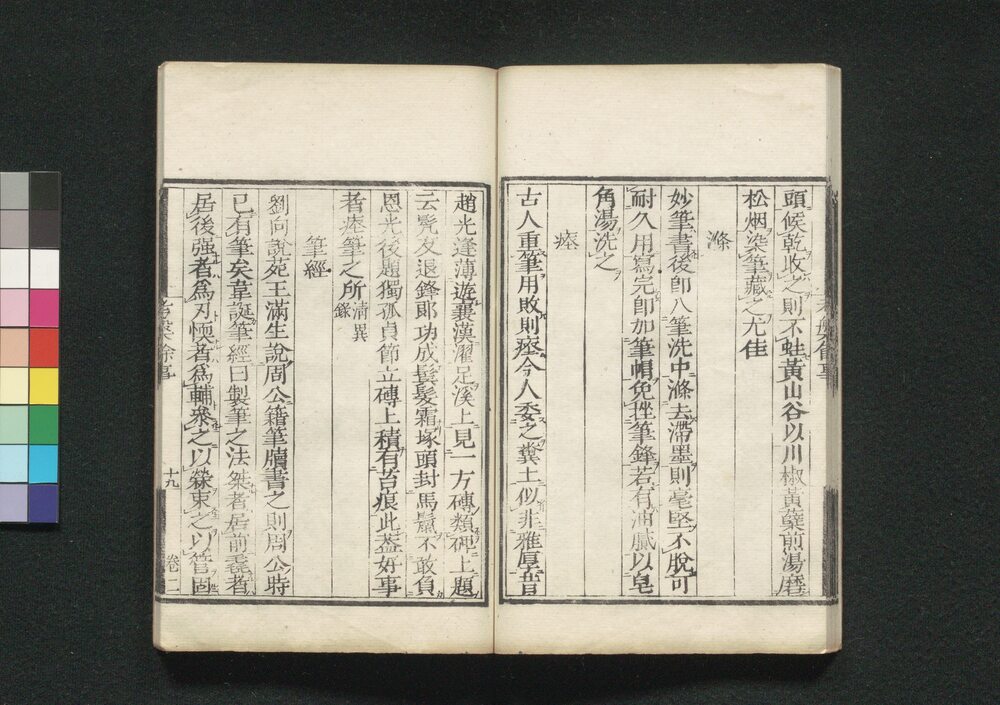 頭候乾收之則不蛀黃山谷以川椒黃蘗煎湯磨
松烟染筆藏之尤佳
滌
妙筆書後卽入筆洗中滌去滯墨則毫堅不脫可
耐久用寫完卽加筆帽免挫筆鋒若有油膩以皂
角湯洗之
瘞
古人重筆用敗則瘞今人委之糞土似非雅厚昔
趙光逢薄遊襄漢濯足溪上見一方磚類碑上題
云髡友退鋒郞功成鬂髮霜塚頭封馬鬛不敢負
恩光後題獨孤貞節立磚上積有苔痕此盖好事
者瘞筆之所淸異錄
筆經
劉向說苑王滿生說周公籍筆牘書之則周公時
已有筆矣韋誕筆經曰製筆之法桀者居前毳者
居後强者爲刃愞者爲輔參之以檾束之以管固
考槃餘事
十九
卷二